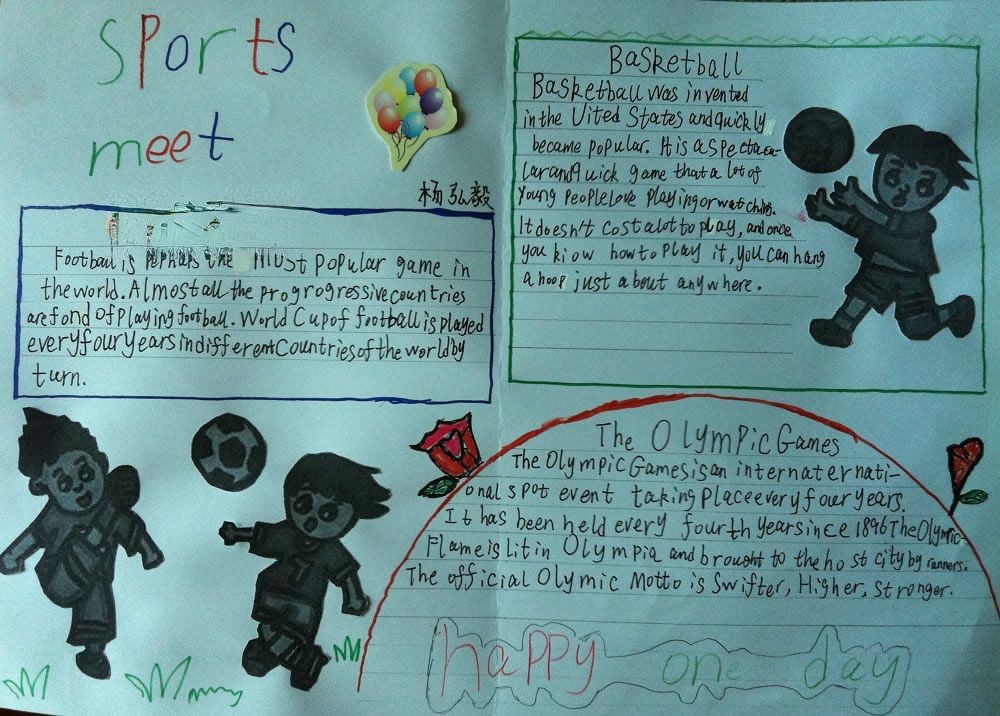 Sports
meet
杨弘毅
Football is perhaps the most popular game in
the world. Almost all the progrogressive countries
are fond of playing football. World Cup of football is played
every four years in different countries of the world by
turn.
Basketball
Basketball was invented
in the Uited States and quickly
became popular. It is a spectacu-
lar and quick game that a lot of
young people love playing or watching.
It doesn't cost a lot to play, and once
you kiow how to play it, you can hang
a hoop just about anywhere.
7
The Olympic Games
The Olympic Games is an internaternati-
onal spot event taking place every four years.
It has been held every fourth year since 1896 The Olympic
Flame is lit in Olympia and brought to the host city by runners.
The official Olymic Motto is Swifter, Higher, Stronger.
happy one day